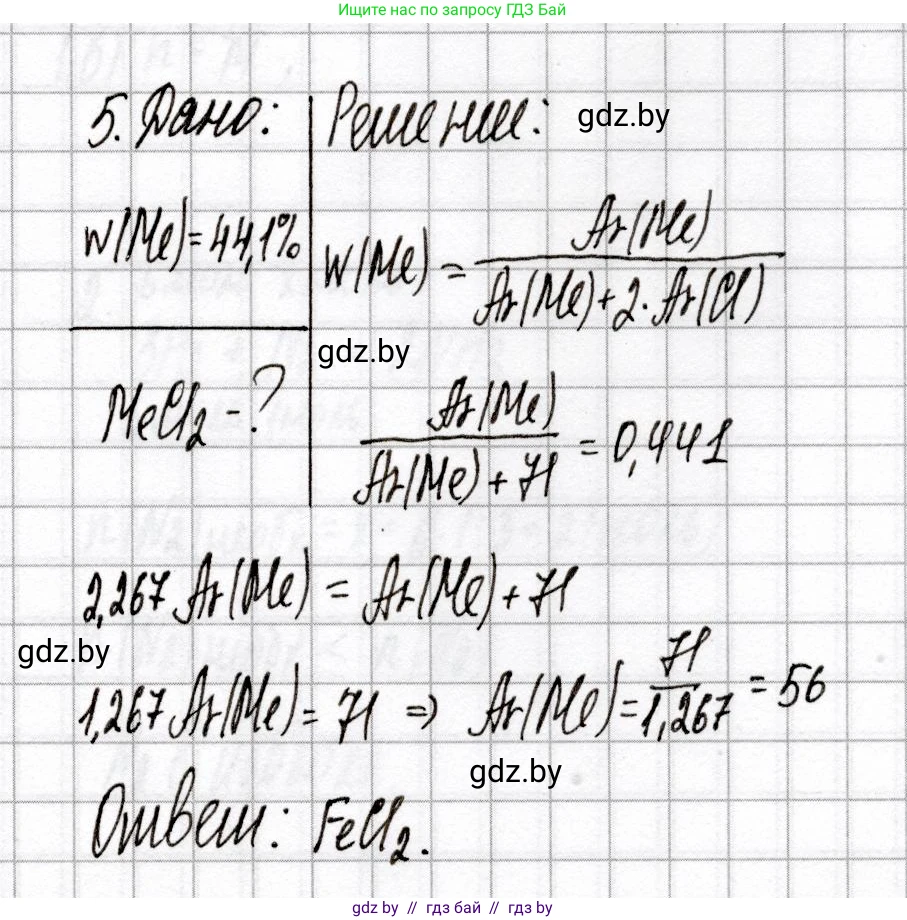 Ищите нас по запросу ГДЗ Бай
5. Дано:
Решение:
gdz.by
w(Me) = 44,1%
w(Me) = Ar(Me) / Ar(Me) + 2 · Ar(Cl)
gdz.by
MeCl₂ - ?
Ar(Me) / Ar(Me) + 71 = 0,441
2,267 Ar(Me) = Ar(Me) + 71
gdz.by
1,267 Ar(Me) = 71 => Ar(Me) = 71 / 1,267 = 56
gdz.by
Ответ: FeCl₂.
gdz.by // гдз бай // gdz by